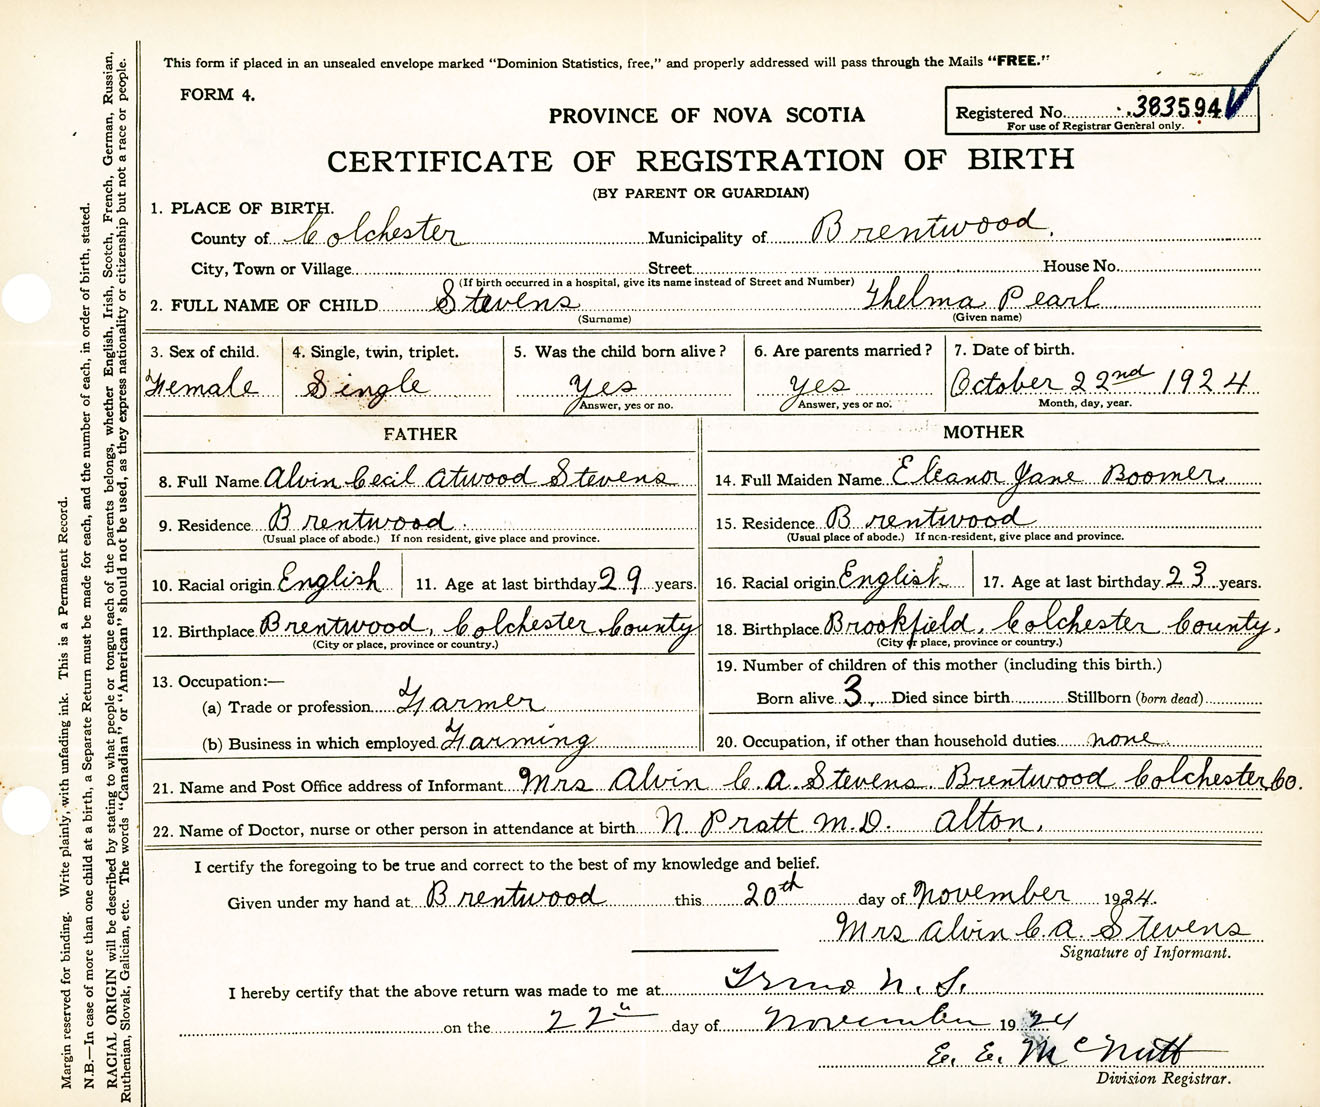 This form if placed in an unsealed envelope marked "Dominion Statistics, free," and properly addressed will pass through the Mails "FREE."
FORM 4.
PROVINCE OF NOVA SCOTIA
Registered No. 383594
For use of Registrar General only.
CERTIFICATE OF REGISTRATION OF BIRTH
(BY PARENT OR GUARDIAN)
1. PLACE OF BIRTH.
County of Colchester Municipality of Brentwood.
City, Town or Village Street House No.
(If birth occurred in a hospital, give its name instead of Street and Number)
2. FULL NAME OF CHILD Stevens Thelma Pearl
(Surname) (Given name)
3. Sex of child. 4. Single, twin, triplet. 5. Was the child born alive? 6. Are parents married? 7. Date of birth.
Female Single Yes Yes October 22nd 1924
Answer, yes or no. Answer, yes or no. Month, day, year.
FATHER MOTHER
8. Full Name Alvin Cecil Atwood Stevens 14. Full Maiden Name Eleanor Jane Boomer.
9. Residence Brentwood. 15. Residence Brentwood
(Usual place of abode.) If non resident, give place and province. (Usual place of abode.) If non-resident, give place and province.
10. Racial origin English 11. Age at last birthday 29 years. 16. Racial origin English 17. Age at last birthday 23 years.
12. Birthplace Brentwood, Colchester County 18. Birthplace Brookfield, Colchester County.
(City or place, province or country.) (City or place, province or country.)
13. Occupation:— 19. Number of children of this mother (including this birth.)
(a) Trade or profession Farmer Born alive 3, Died since birth Stillborn (born dead)
(b) Business in which employed Farming 20. Occupation, if other than household duties none
21. Name and Post Office address of Informant Mrs Alvin C. A. Stevens. Brentwood Colchester Co.
22. Name of Doctor, nurse or other person in attendance at birth N Pratt M.D. Alton.
I certify the foregoing to be true and correct to the best of my knowledge and belief.
Given under my hand at Brentwood this 20th day of November 1924.
Mrs Alvin C. A. Stevens
Signature of Informant.
I hereby certify that the above return was made to me at Truro N. S.
on the 22 day of November 1924
E. E. McNutt
Division Registrar.
Margin reserved for binding. Write plainly, with unfading ink. This is a Permanent Record.
N.B.—In case of more than one child at a birth, a Separate Return must be made for each, and the number of each, in order of birth, stated.
RACIAL ORIGIN will be described by stating to what people or tongue each of the parents belongs, whether English, Irish, Scotch, French, German, Russian,
Ruthenian, Slovak, Galician, etc. The words "Canadian" or "American" should not be used, as they express nationality or citizenship but not a race or people.